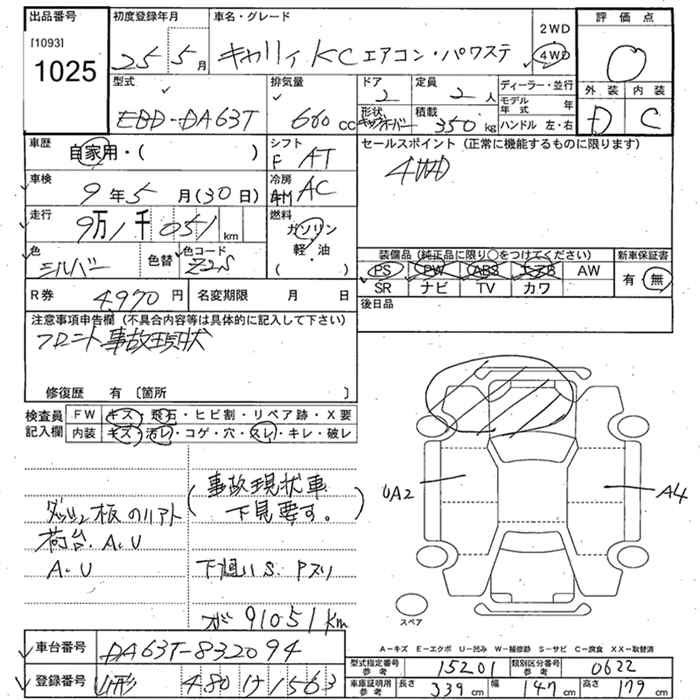 出品番号
[1093]
1025
初度登録年月
25 5 月
車名・グレード
キャリィ KC エアコン・パワステ
2WD
4WD
評価点
外装 内装
D C
型式
EBD-DA63T
排気量
660 cc
ドア
2
定員
2 人
形状
積載
350 kg
ディーラー・並行
モデル年式 年
ハンドル 左・右
車歴
自家用・( )
シフト
F AT
セールスポイント(正常に機能するものに限ります)
4WD
車検
9 年 5 月(30日)
冷房
AC
走行
9万1千051 km
燃料
ガソリン
軽・油
( )
色
シルバー
色替
色コード
Z2S
装備品(純正品に限り○をつけてください)
PS PW ABS エアB AW
SR ナビ TV カワ
新車保証書
有・無
R券 4,970 円
名変期限 月 日
後日品
注意事項申告欄(不具合内容等は具体的に記入して下さい)
フロント事故現状
修復歴 有〔箇所 〕
検査員記入欄
FW キズ・飛石・ヒビ割・リペア跡・X要
内装 キズ・汚レ・コゲ・穴・スレ・キレ・破レ
(事故現状車
下見要す。)
荷台.A.U
A.U
下廻りS.Pズリ
メーター 91051km
UA2
A4
スペア
A-キズ E-エクボ U-凹み W-補修跡 S-サビ C-腐食 XX-取替済
車台番号 DA63T-832094
登録番号 山形 480 け 1563
型式指定番号 参考 15201 類別区分番号 参考 0622
車庫証明用 参考 長さ 339 cm 幅 147 cm 高さ 179 cm